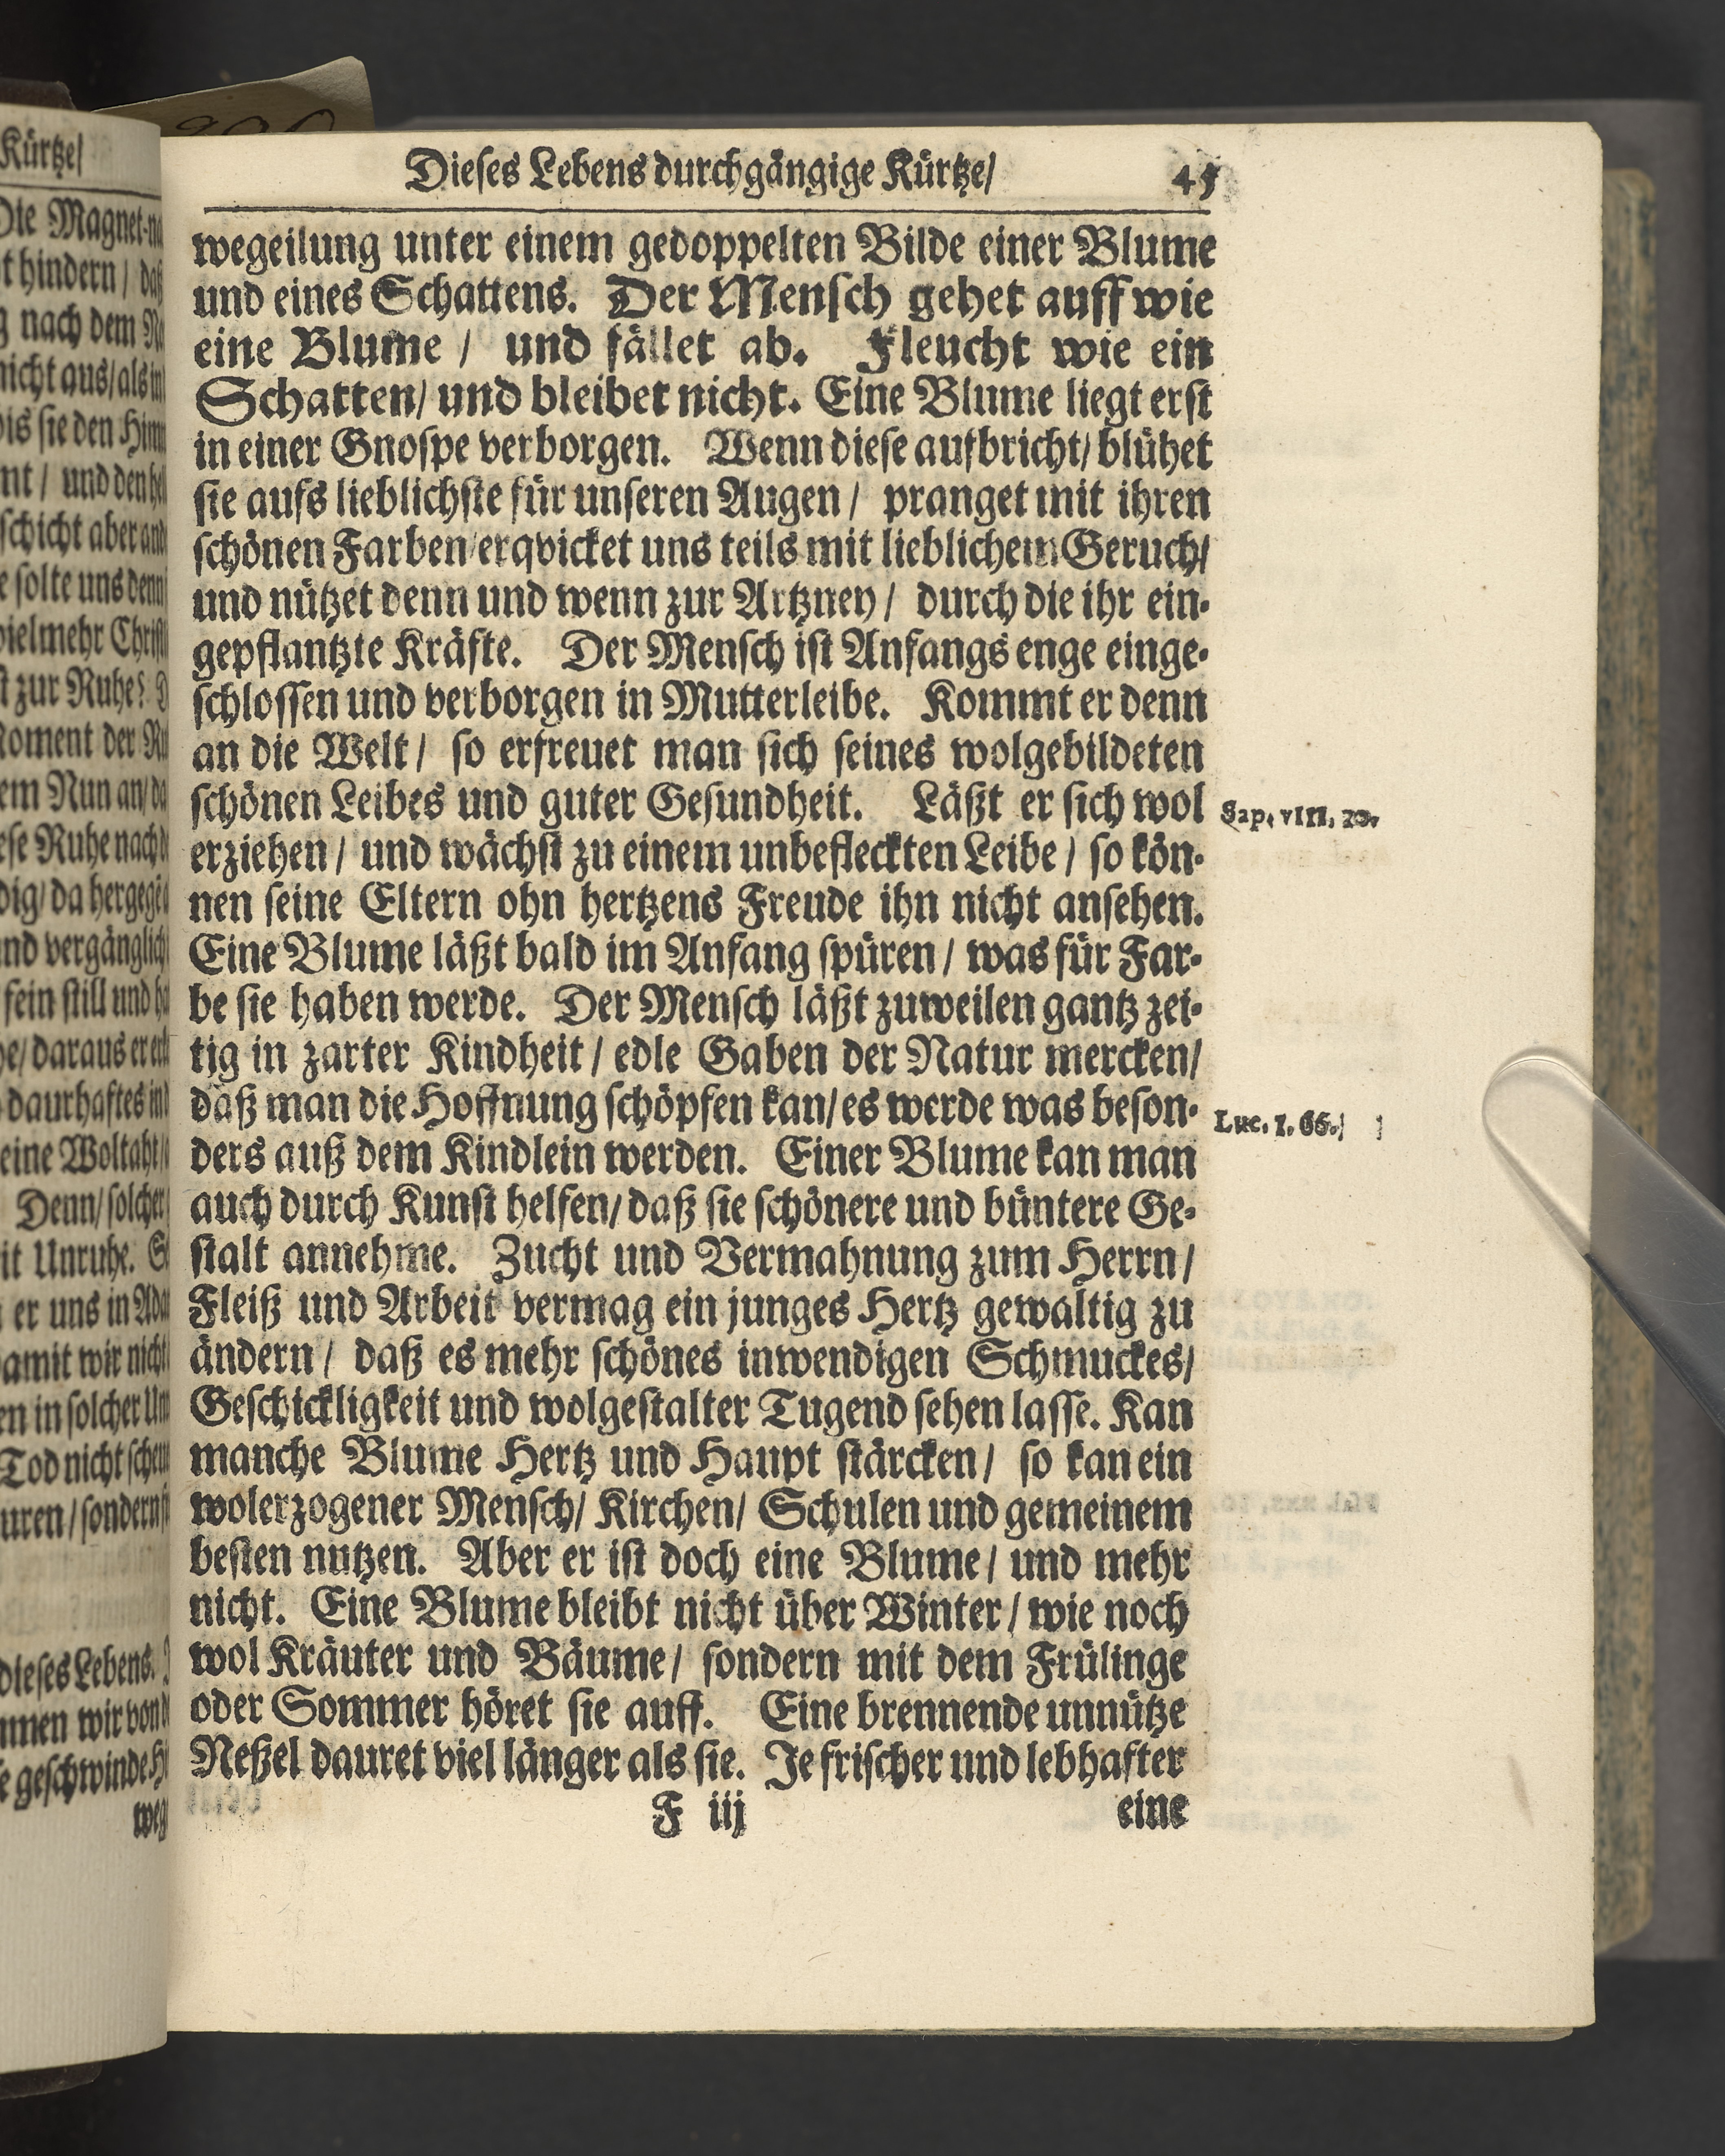 Dieses Lebens durchgängige Kürtze/ 45
wegeilung unter einem gedoppelten Bilde einer Blume
und eines Schattens. Der Mensch gehet auff wie
eine Blume / und fället ab. Fleucht wie ein
Schatten/ und bleibet nicht. Eine Blume liegt erst
in einer Gnospe verborgen. Wenn diese aufbricht/ blühet
sie aufs lieblichste für unseren Augen / pranget mit ihren
schönen Farben/ erqvicket uns teils mit lieblichem Geruch/
und nützet denn und wenn zur Artzney / durch die ihr ein-
gepflantzte Kräfte. Der Mensch ist Anfangs enge einge-
schlossen und verborgen in Mutterleibe. Kommt er denn
an die Welt / so erfreuet man sich seines wolgebildeten
schönen Leibes und guter Gesundheit. Läßt er sich wol
Sap. VIII. 20.
erziehen / und wächst zu einem unbefleckten Leibe / so kön-
nen seine Eltern ohn hertzens Freude ihn nicht ansehen.
Eine Blume läßt bald im Anfang spüren / was für Far-
be sie haben werde. Der Mensch läßt zuweilen gantz zei-
tig in zarter Kindheit / edle Gaben der Natur mercken/
daß man die Hoffnung schöpfen kan/ es werde was beson-
Luc. I. 66.
ders auß dem Kindlein werden. Einer Blume kan man
auch durch Kunst helfen/ daß sie schönere und büntere Ge-
stalt annehme. Zucht und Vermahnung zum Herrn /
Fleiß und Arbeit vermag ein junges Hertz gewaltig zu
ändern / daß es mehr schönes inwendigen Schmuckes/
Geschickligkeit und wolgestalter Tugend sehen lasse. Kan
manche Blume Hertz und Haupt stärcken / so kan ein
wolerzogener Mensch/ Kirchen/ Schulen und gemeinem
besten nutzen. Aber er ist doch eine Blume / und mehr
nicht. Eine Blume bleibt nicht über Winter / wie noch
wol Kräuter und Bäume / sondern mit dem Frülinge
oder Sommer höret sie auff. Eine brennende unnütze
Neßel dauret viel länger als sie. Je frischer und lebhafter
F iij eine